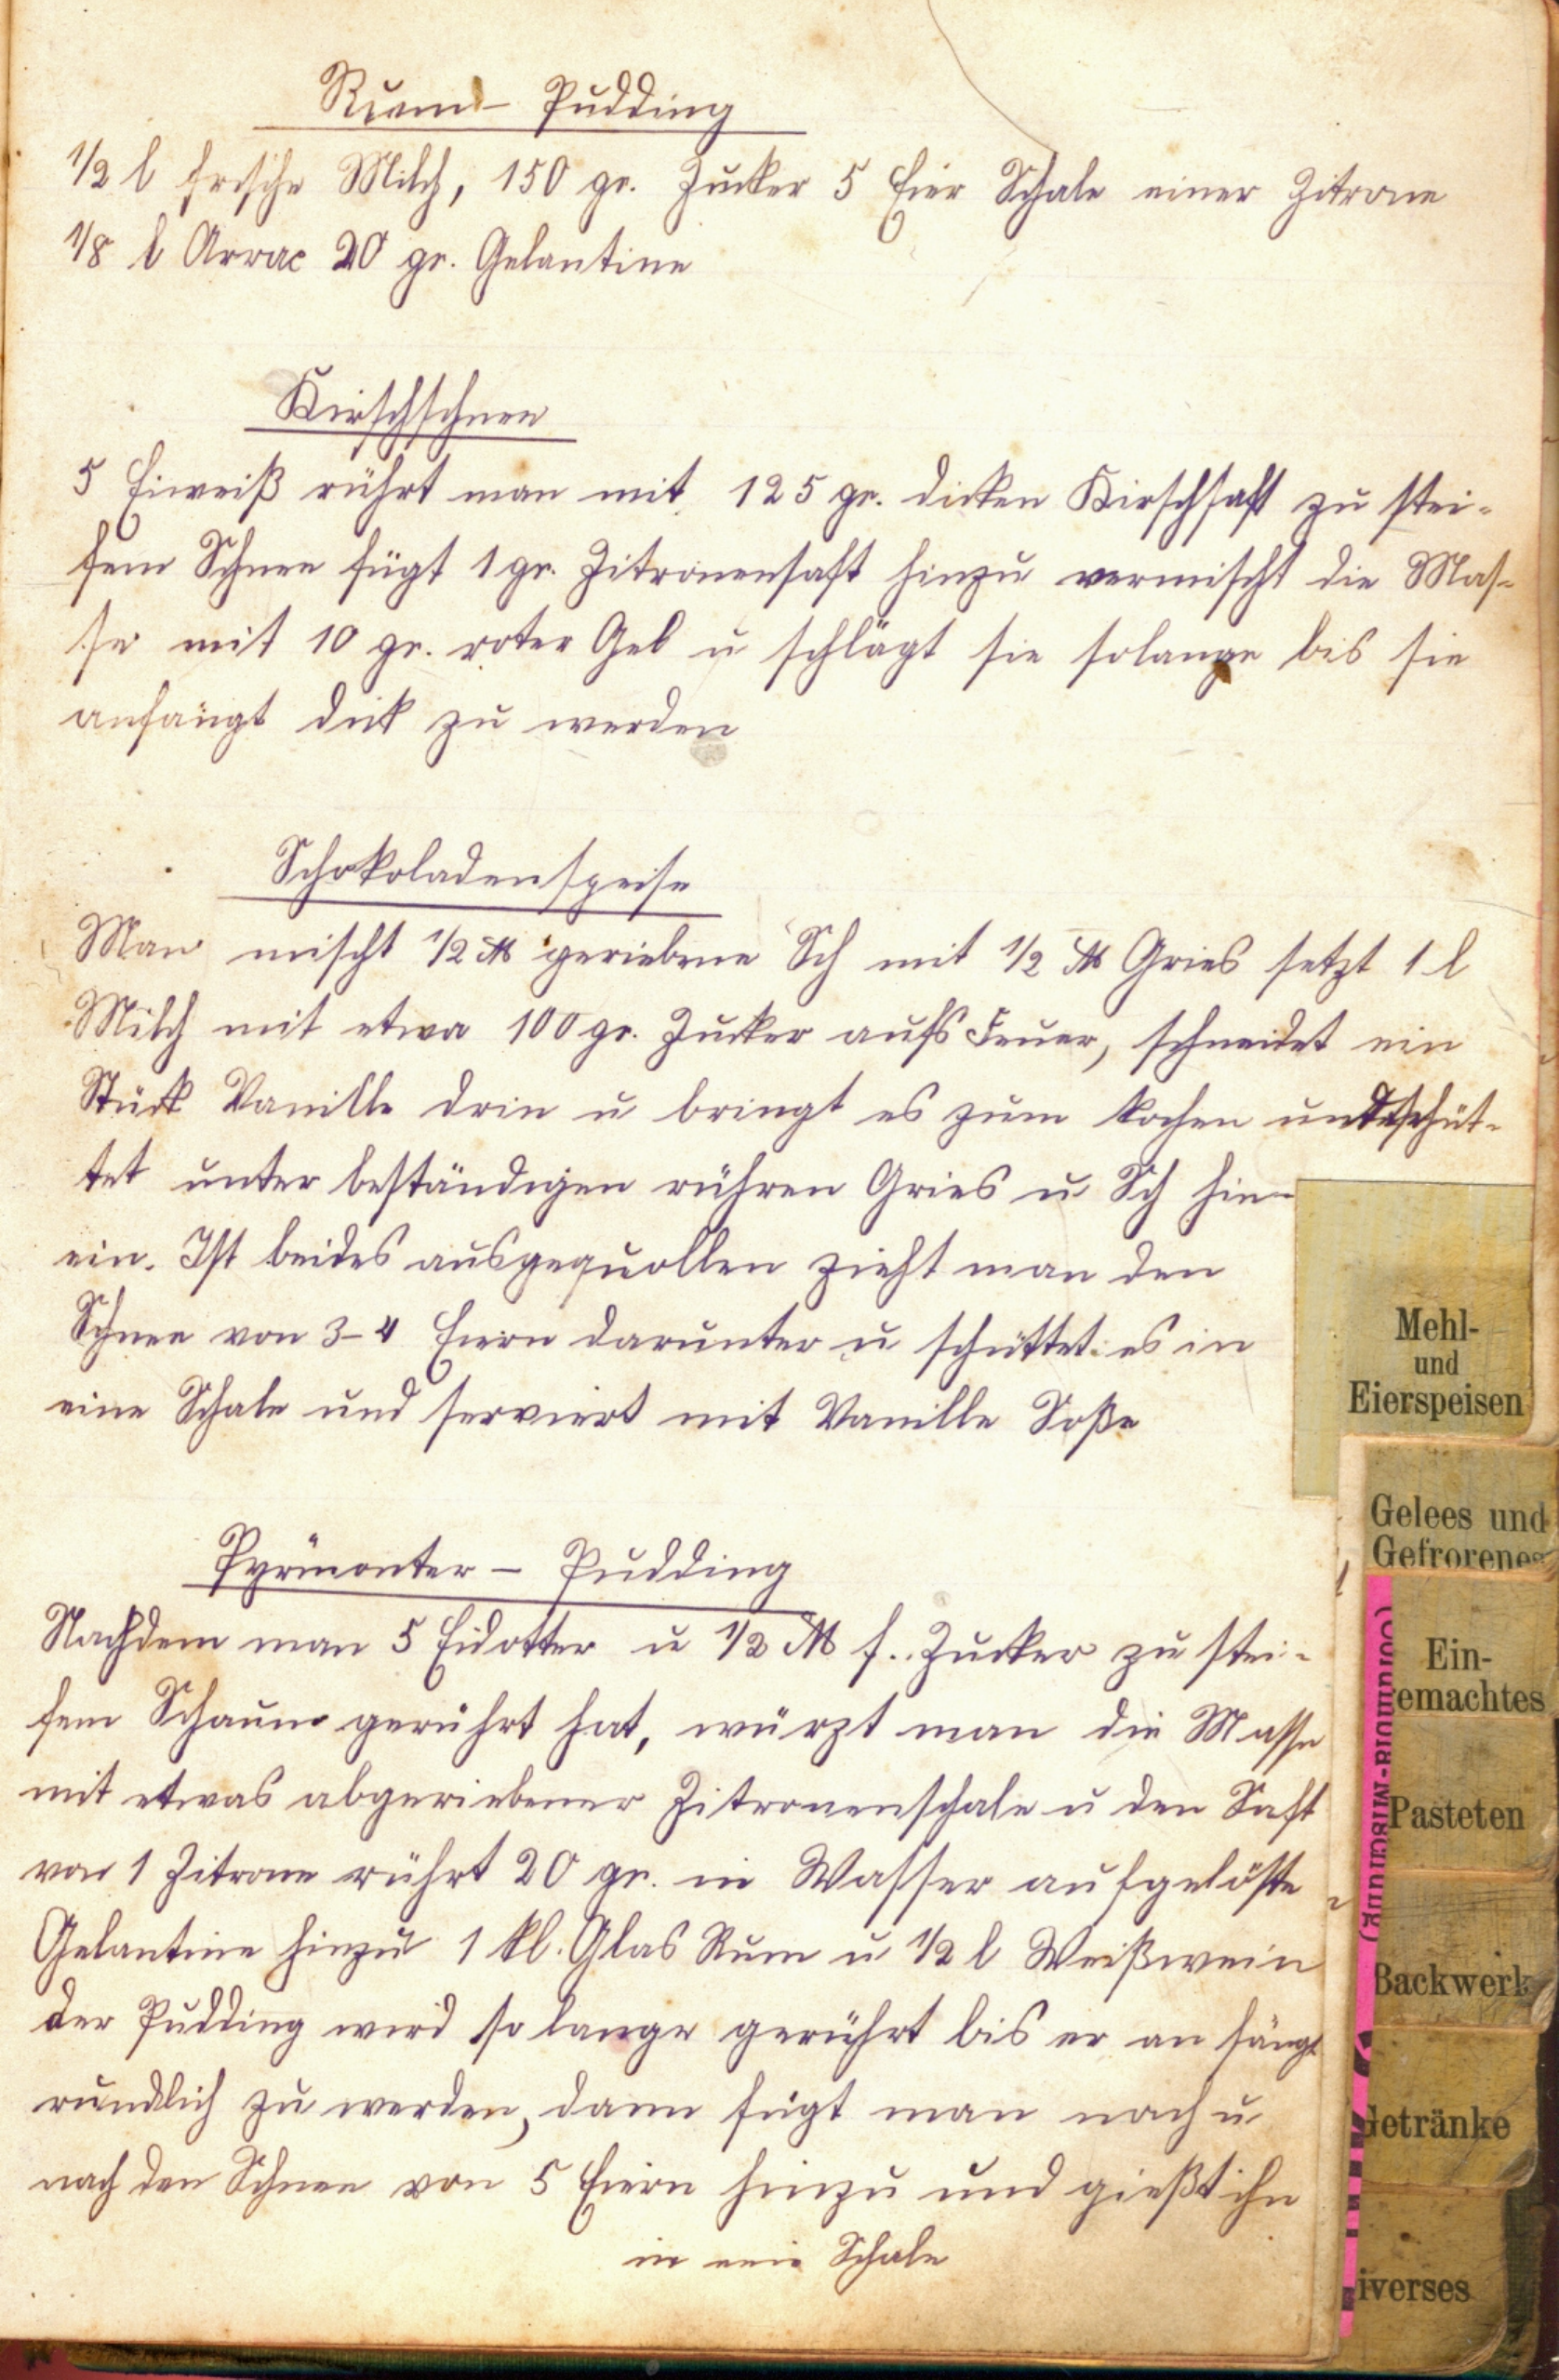 Rum - Pudding
1/2 l frische Milch, 150 gr. Zucker 5 Eier Schale einer Zitrone
1/8 l Arrac 20 gr. Gelantine
Kirschschnee
5 Eiweiß rührt man mit 125 gr. dicken Kirschsaft zu stei-
fem Schnee fügt 1 gr. Zitronensaft hinzu vermischt die Mas-
se mit 10 gr. roter Gel u schlägt sie solange bis sie
anfängt dick zu werden
Schokoladenspeise
Man mischt 1/2 ℔ geriebene Sch mit 1/2 ℔ Gries setzt 1 l
Milch mit etwa 100 gr. Zucker aufs Feuer, schneidet ein
Stück Vanille drin u bringt es zum kochen und schüt-
tet unter beständigen rühren Gries u Sch hin-
ein. Ist beides ausgequollen zieht man den
Schnee von 3-4 Eiern darunter u schüttet es in
eine Schale und serviert mit Vanille Soße
Pyrmonter - Pudding
Nachdem man 5 Eidotter u 1/2 ℔ f. Zucker zu stei-
fem Schaum gerührt hat, würzt man die Masse
mit etwas abgeriebener Zitronenschale u den Saft
von 1 Zitrone rührt 20 gr. in Wasser aufgelöste
Gelantine hinzu 1 kl. Glas Rum u 1/2 l Weißwein
der Pudding wird so lange gerührt bis er an fängt
rundlich zu werden, dann fügt man nach u
nach den Schnee von 5 Eiern hinzu und gießt ihn
in eine Schale
Mehl-
und
Eierspeisen
Gelees und
Gefrorenes
Ein-
gemachtes
Pasteten
Backwerk
Getränke
iverses